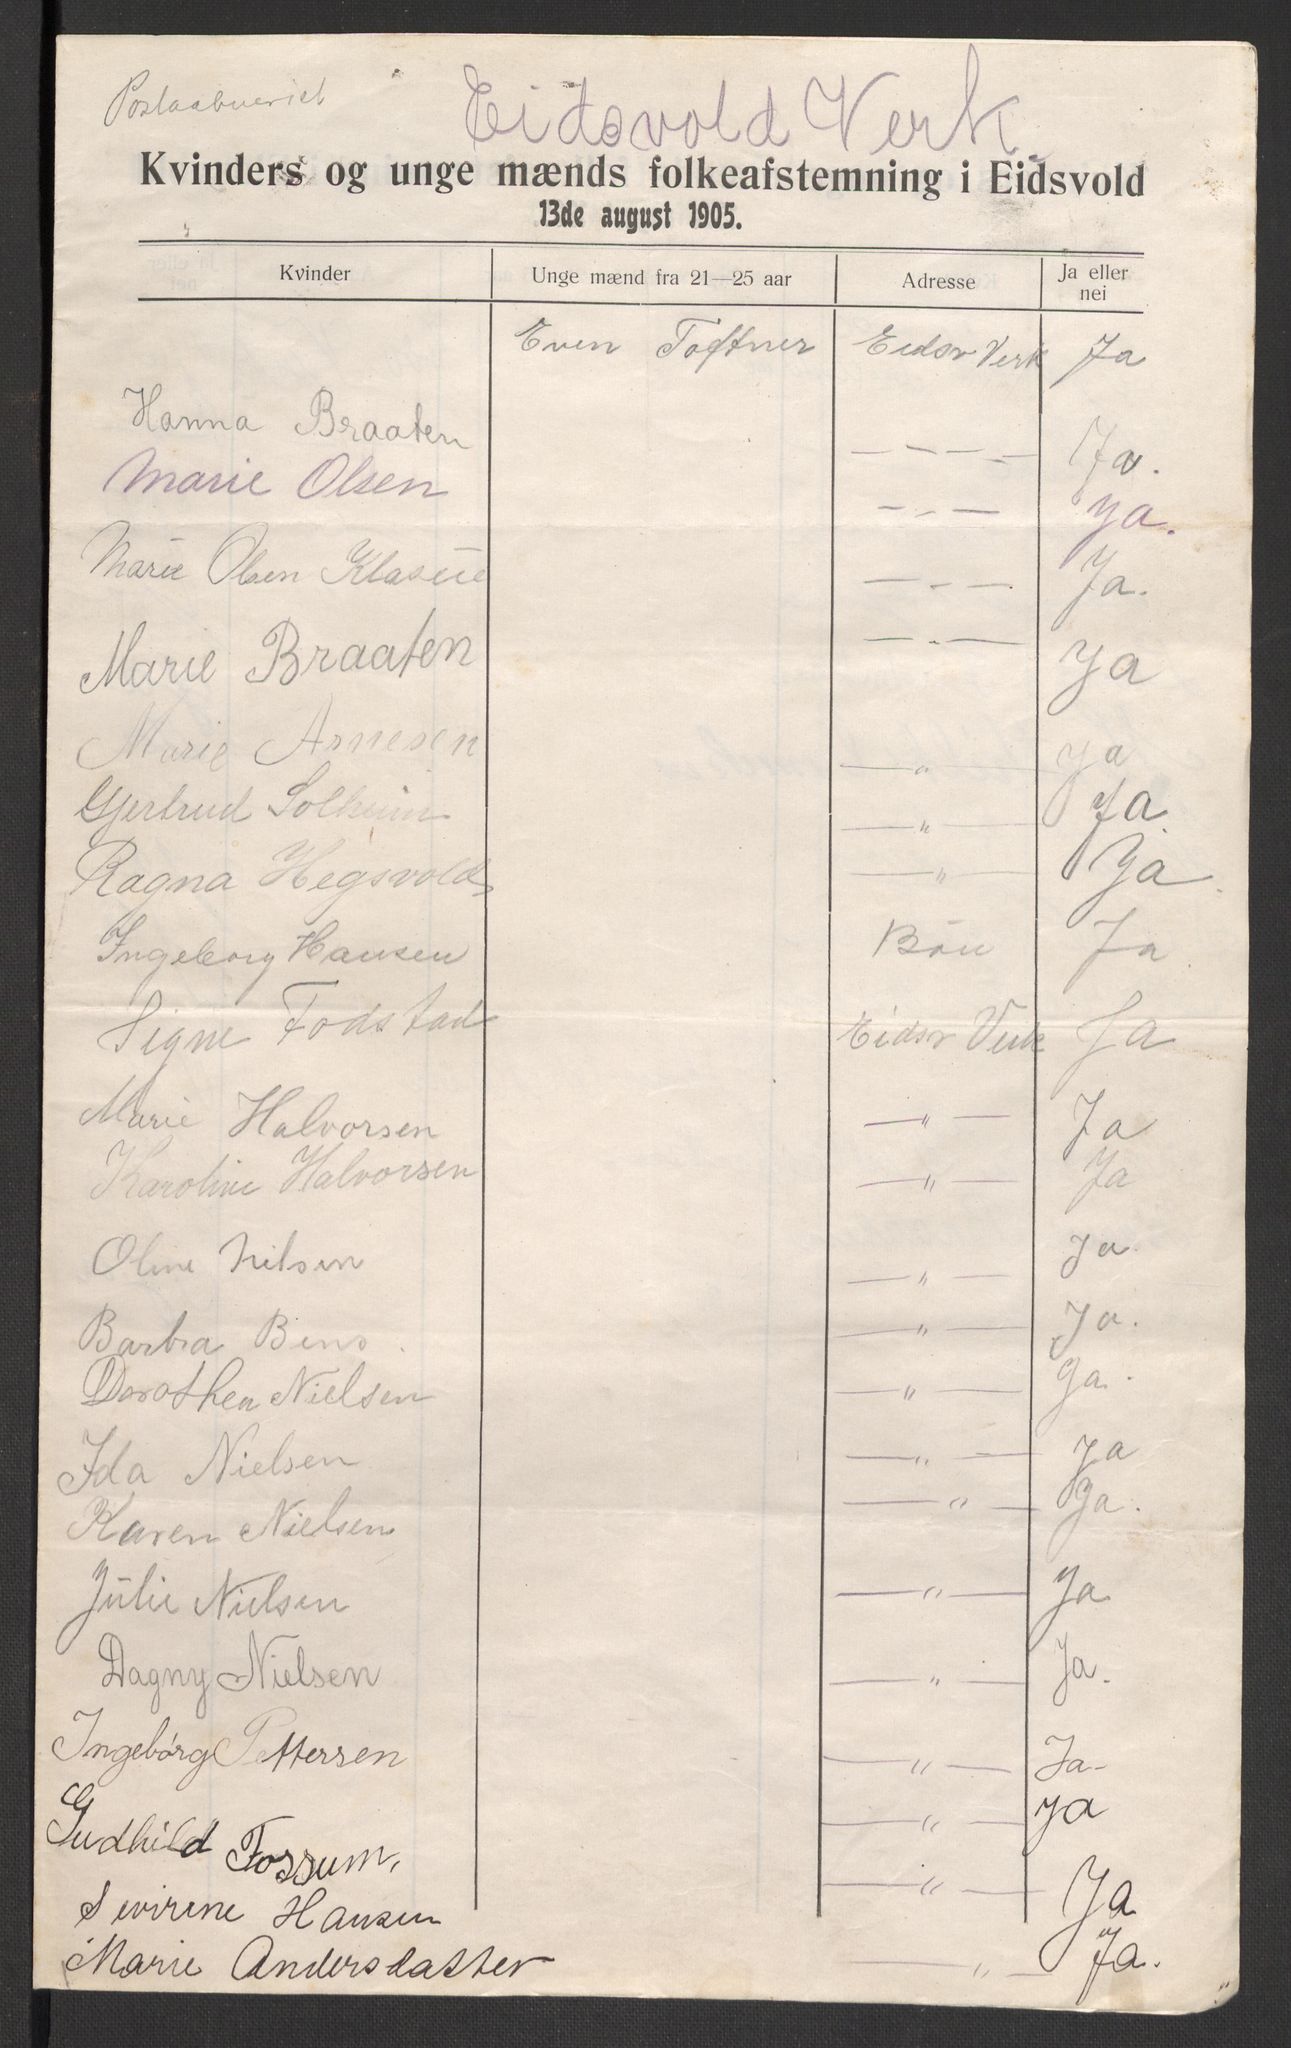 Postaabneriet
Eidsvold Verk.
Kvinders og unge mænds folkeafstemning i Eidsvold
13de august 1905.
Kvinder Unge mænd fra 21—25 aar Adresse Ja eller nei
Even Toftner Eidsv Verk Ja
Hanna Braaten — — — — Ja.
Marie Olsen — — — Ja.
Marie Olsen — — — Ja.
Marie Braaten — — — Ja
Marie Arnesen — „ — Ja
Gjertrud Solheim — „ — Ja.
Ragna Hegsvold — „ — Ja.
Ingeborg Hansen Bøn Ja
Signe Fodstad Eidsv Verk Ja
Marie Halvorsen — „ — Ja
Karoline Halvorsen — „ — Ja
Oline Nilsen — „ — Ja.
Barbra — „ — Ja.
Dorothea Nielsen — „ — Ja.
Ida Nielsen — „ — Ja
Karen Nielsen — „ — Ja.
Julie Nielsen — „ — Ja
Dagny Nielsen — „ — Ja.
Ingeborg Pettersen — „ — Ja-
Gudhild Fossum. — „ — Ja
Sevirene Hansen — „ — Ja
Marie Andersdatter — „ — Ja.